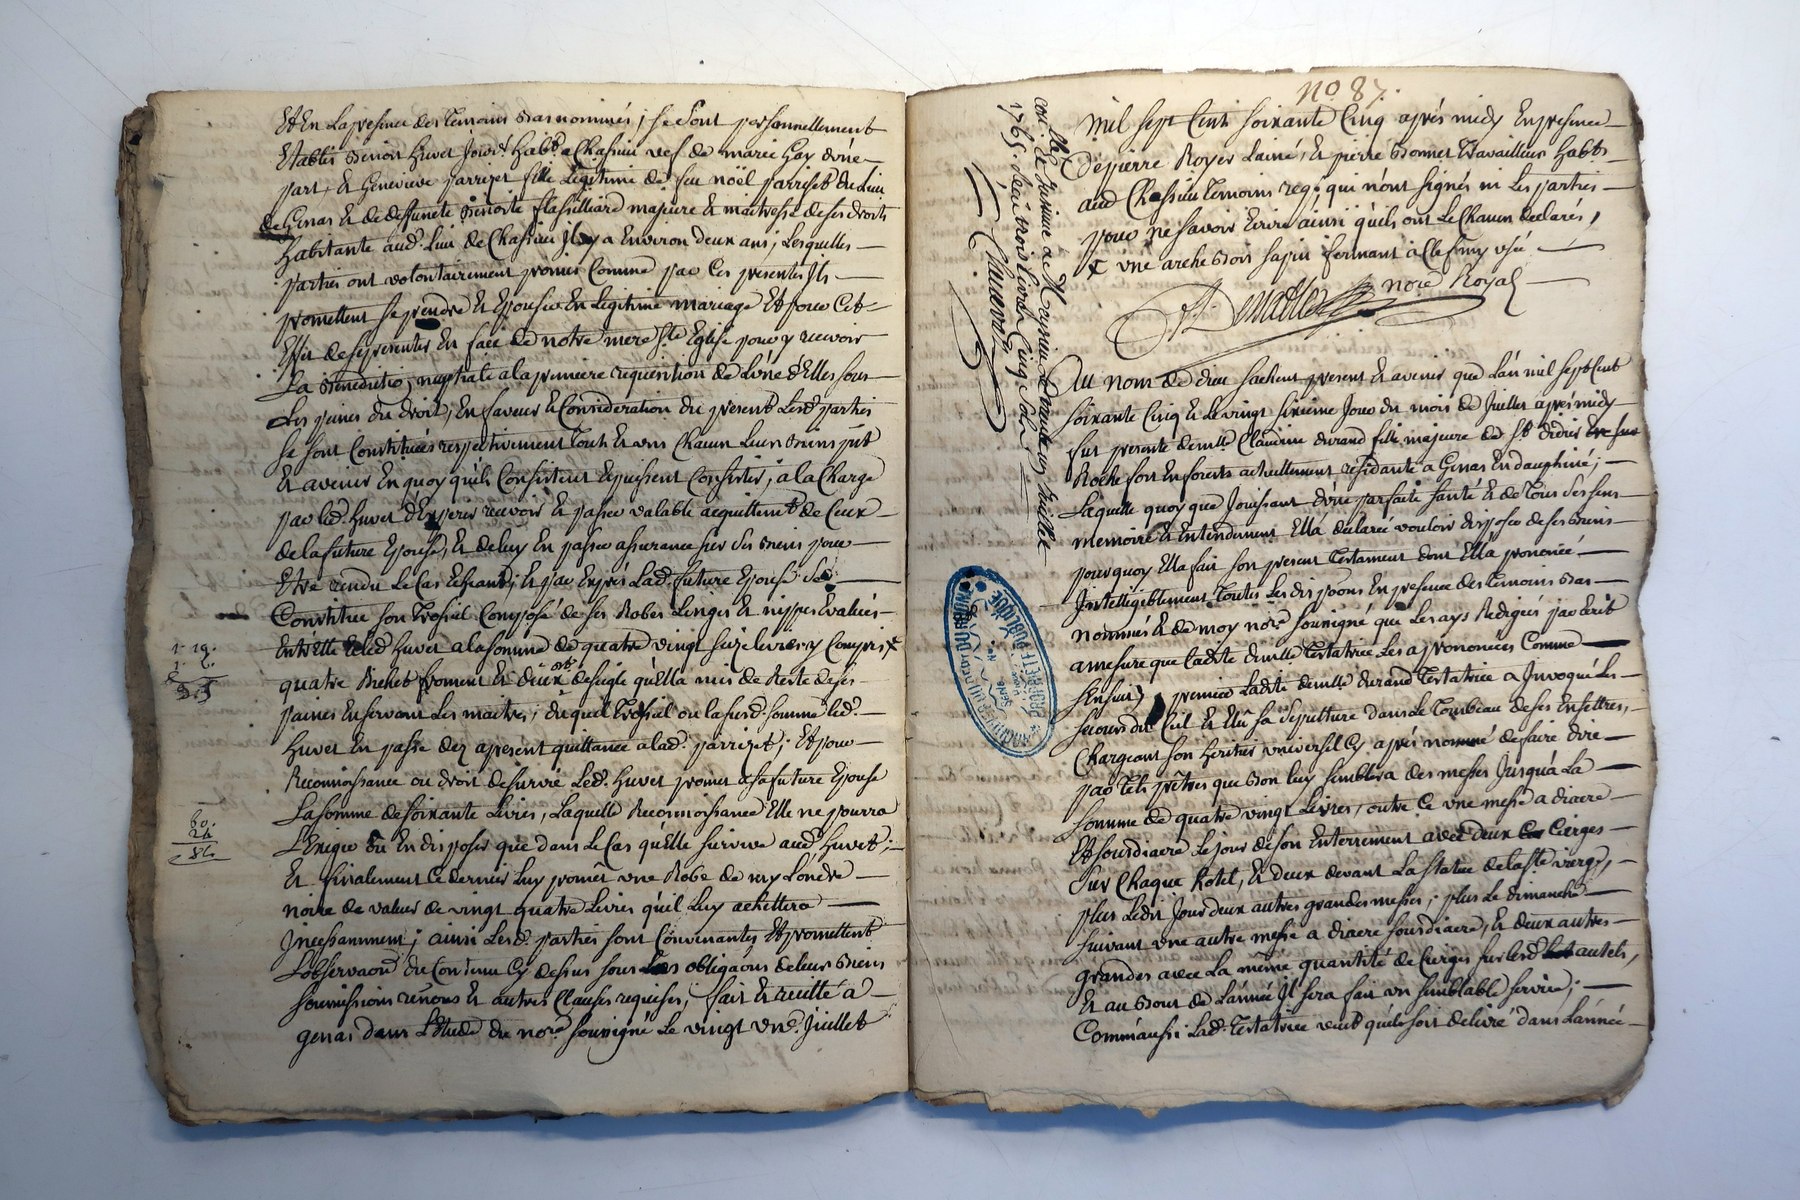 Et En La presence des Temoins Bas nommés, se Sont personnellement
Etablis Benoit Huvet Jour. habt a Chassieu vef. de marie Gay d'une
part, Et Genevieve parrizet fille Legitime de feu noël parrizet du Lieu
de Genas Et de deffunete Benoite flassilliard majeure Et maitresse de ses droits
habitante aud. Lieu de Chassieu Jl y a Environ deux ans, Lesquelles
parties ont volontairement promis Comme par Ces presentes Jls
promettent se prendre Et Epouser En Legitime mariage Et pour Cet
Effet de se presenter En face de notre mere Ste Eglise pour y recevoir
La Benedictio, nuptiale a la premiere requisition de L'une d'Elles sous
Les peines du droit, En faveur & Consideration du present Lesd. parties
se sont Constituées respectivement Touts Et uns Chacun Leurs Biens pnt
Et avenir En quoy qu'ils Consistent & puissent Consister, a la Charge
par led. Huvet d'Experir recevoir Et passer valable acquittemt de Ceux
de la future Epouse, Et de luy En passer assurance sur Ses Biens pour
Etre rendu Le Cas Echeant; Et par Exprés Lad. future Epouse Se
Constitue son Trosiel Composé de ses Robes Linges Et nippes Evalués
Entr'Elle & led. Huvet a la somme de quatre vingt seize livres y Compris X
quatre Bichet froment Et deux de segle qu'Ella mis de Reste de ses
paines En servant Les maitres, duquel Trosiel ou la susd. somme led.
Huvet En passe dez apresent quittance a lad. parrizet; Et pour
Reconnoissance ou droit de survie Led. Huvet promet a sa future Epouse
La somme de soixante Livres, Laquelle Reconnoissance Elle ne pourra
L'Exiger ou En disposer que dans Le Cas qu'Elle survive aud. Huvet;
Et finalement Ce dernier Luy promêt une Robe de Londre
noire de valeur de vingt quatre Livres qu'il Luy achettera
Jncessamment; ainsi Lesd. parties sont Convenantes Et promettent
L'observaon du Contenu Cy dessus sous Les obligaons de leurs Biens
soumissions renons Et autres Clauses requises, fait Et recitté a
genas dans L'Etude du nore soussigné Le vingt un Juillet
60.
24
84
no 87.
mil sept Cent soixante Cinq aprés midy En presence
De pierre Royer Lainé, Et pierre Bonnet Travailleur habts
aud Chassieu Temoins req. qui n'ont signés ni Les parties
pour ne savoir Ecrire ainsi qu'ils ont Le Chacun declarés,
X une arche Bois sapin fermant a Clef my usé
nore Royal
Coll. Le huitieme de Heyrieu
1765. Recu trois livres Cinq Sols
Au nom de dieu sachent present Et avenir que L'an mil sept Cent
soixante Cinq & Le vingt sixieme Jour du mois de Juillet après midy
fut presente demlle Claudine durand fille majeure de St didier
Rochefort En foret actuellement residante a Genas En dauphiné;
Laquelle quoy que Jouissant d'une parfaite santé Et de Tous ses sens
memoire Et Entendement Ella declaré vouloir disposer de ses Biens
pourquoy Ella fait son present Testament dont Ella prononcé
Jntelligeblement Toutes Les disp̄ons En presence des Temoins Bas
nommés Et de moy nore soussigné que Les ays Redigées par Ecrit
a mesure que Ladite demlle Testatrice Les a prononcées Comme
s'Ensuit; premier Ladite demlle durand Testatrice a Jnvoqué Le
secours du Ciel Et Elû sa sepulture dans Le Tombeau de ses Ensettres,
Chargeant son heritier universel Cy aprés nommé de faire dire
par Tels prêtres que Bon luy semblera des messes Jusqu'a La
somme de quatre vingt Livres, outre Ce une messe a diacre
Et sousdiacre Le jour de son Enterrement avec deux Cierges
sur Chaque hotel, Et deux devant La statue de la ste vierge,
plus Ledit Jour deux autres grandes messes; plus Le dimanche
suivant une autre messe a diacre sousdiacre, Et deux autres
grandes avec La même quantité de Cierges sur lesd autels,
Et au Bout de L'année Jl sera fait un semblable service;
Comm'aussi Lad. Testatrice veut qu'il soit delivré dans L'année